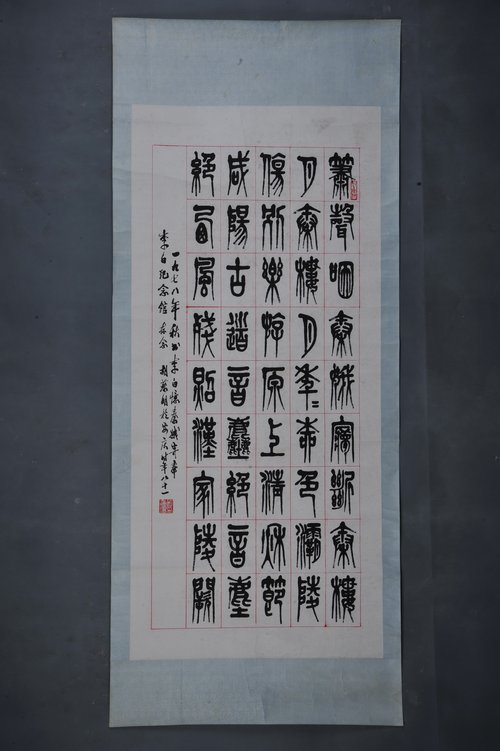 簫聲咽秦娥夢斷秦樓
月秦樓月年〻柳色灞陵
傷別樂游原上清秋節
咸陽古道音塵絕音塵
絕西風殘照漢家陵闕
一九七八年秋书李白憶秦娥寄奉
李白纪念館存念 於安庆时年八十一